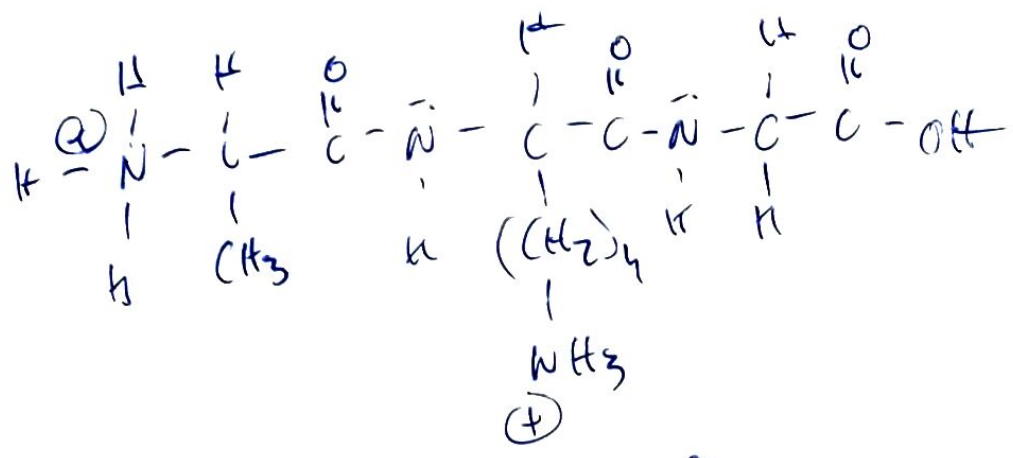 H H O H O H O
⊕
H - N - C - C - N̈ - C - C - N̈ - C - C - OH
H CH3 H (CH2)4 H H
NH3
⊕